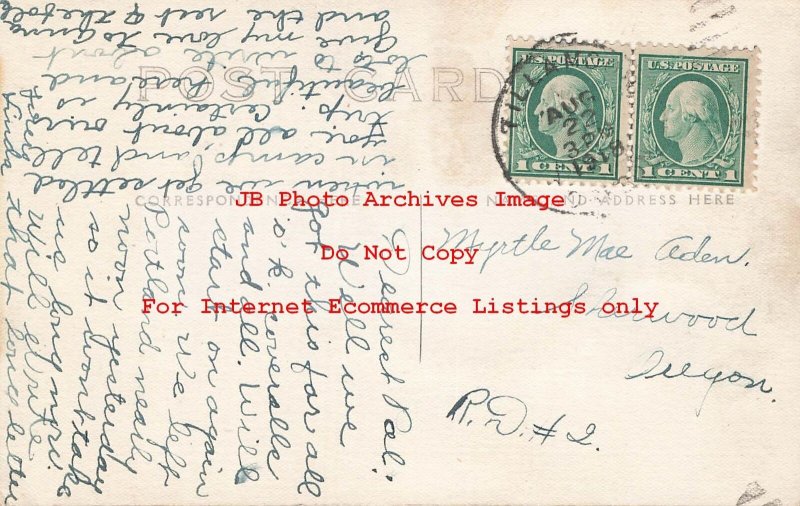 POST CARD
CORRESPONDENCE
NAME AND ADDRESS HERE
TILLAM
AUG
1919
U.S. POSTAGE
1 CENT 1
U.S. POSTAGE
1 CENT 1
Myrtle Mae Aden.
Sherwood
Oregon.
R.D. #2.
Dearest Pal:
Well we
got this far all
o.k. coveralls
and all. Will
start on again
soon. We left
Portland nearly
noon yesterday
so it wont take
us long now.
Will write
that long letter
when we get settled
in camp and tell
you all about our
trip. Certainly is
beautiful here and
lots to write about
Give my love to Anna
and the rest of the folks
Linda
JB Photo Archives Image
Do Not Copy
For Internet Ecommerce Listings only